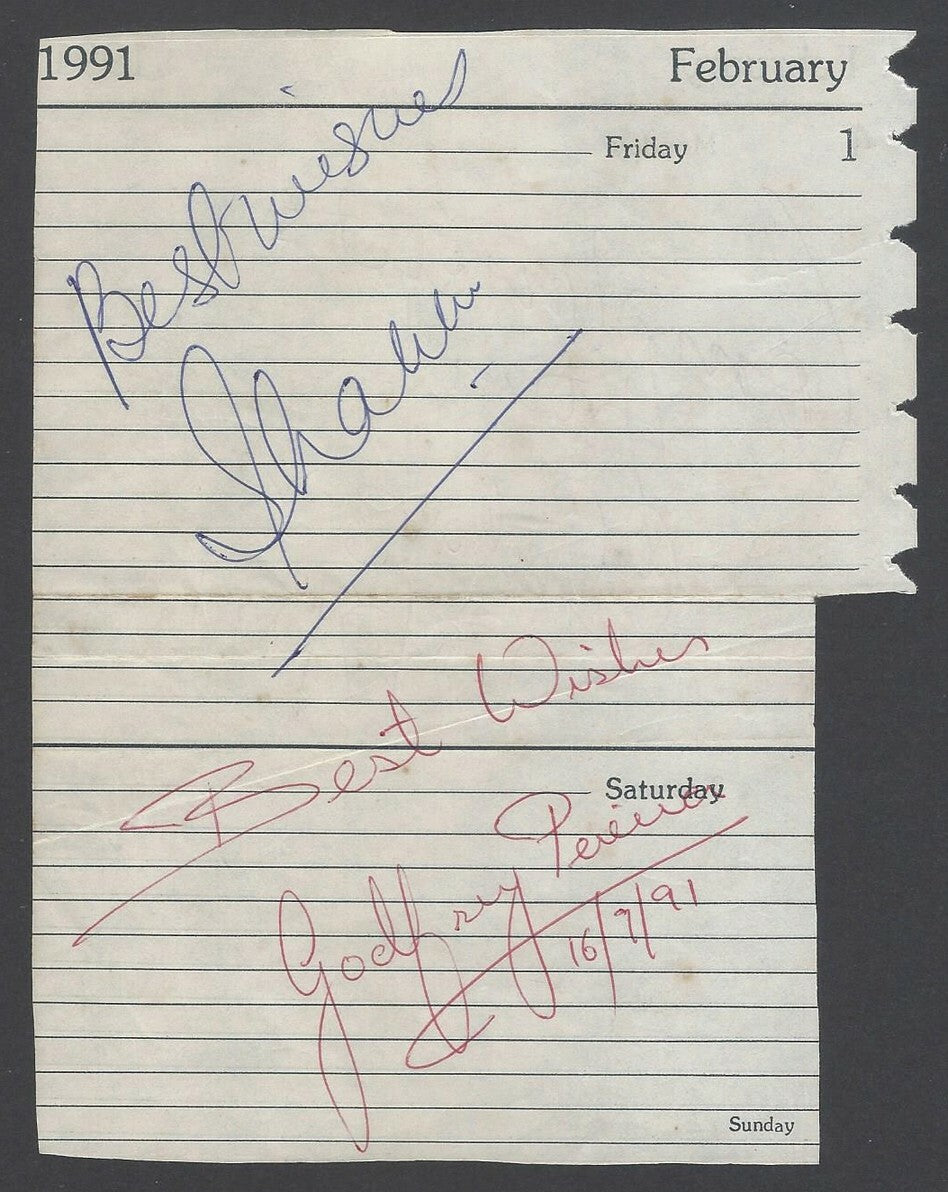 1991 February
Friday 1
Best wishes
Best Wishes
Saturday
Godfrey Pereira
16/7/91
Sunday